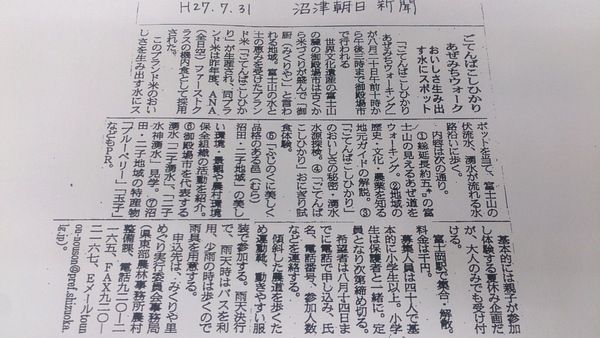 H27.7.31 沼津朝日新聞
ごてんばこしひかり
あぜみちウォーク
おいしさ生み出
す水にスポット
「ごてんばこしひかり
あぜみちウォーキング」
が八月二十日午前十時か
ら午後三時まで御殿場市
で行われる
世界文化遺産の富士山
の麓の御殿場市は古くか
ら米づくりが盛んで「御
厨（みくりや）」と言わ
れる地域。富士山の水と
土の恵みを受けたブラン
ド米「ごてんばこしひか
り」が生産され、同ブラ
ンド米は昨年度、ANA
（全日空）ファーストク
ラスの機内食として採用
された。
このブランド米のおい
しさを生み出す水にス
ポットを当て、富士山の
伏流水、湧水が流れる水
路沿いに歩く。
内容は次の通り。
①総延長約五㌔の富
士山の見えるあぜ道を
ウォーキング。②地域の
歴史・文化・農業を知る
地元ガイドの解説。③
「ごてんばこしひかり」
のおいしさの秘密・湧水
水源探検。④「ごてんば
こしひかり」おにぎり試
食体験。
⑤「ふじのくに美しく
品格のある邑（むら）
沼田・二子地域」の美し
い環境・景観や農村環境
保全組織の活動を紹介。
⑥御殿場市を代表する
湧水「二子湧水」、「二子
水神湧水」見学。⑦沼
田・二子地域の特産物
「ブルーベリー」「玉子」
などもPR。
基本的には親子が参加
し体験する夏休み企画だ
が、大人のみでも受け付
ける。
富士岡駅で集合・解散。
料金は千円。
募集人員は四十人で基
本的に小学生以上。小学
生は保護者と一緒に。定
員となり次第締め切る。
希望者は八月十四日ま
でに電話で申し込み、氏
名、電話番号、参加人数
などを連絡する。
傾斜した農道を歩くた
め運動靴、動きやすい服
装で参加する。雨天決行
で、雨天時はバスを利
用、少雨の時は歩くので
雨具を用意する。
申込先は、みくりや里
めぐり実行委員会事務局
（県東部農林事務所農村
整備課、電話九二〇―二
一六五、FAX九二〇―
二一六七、Eメールtoun
ou-nouson@pref.shizuoka.
lg.jp）。